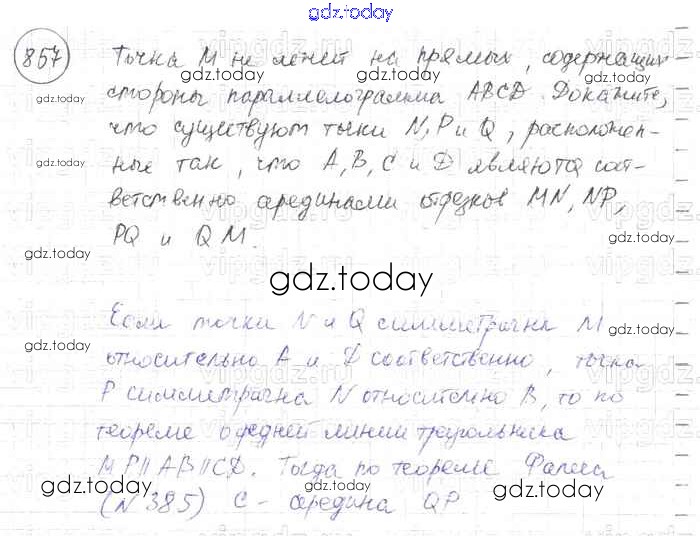 gdz.today
857 Точка M не лежит на прямых, содержащих
gdz.today
стороны параллелограмма ABCD. Докажите,
что существуют точки N, P и Q, расположен-
gdz.today gdz.today
ные так, что A, B, C и D являются соот-
ветственно серединами отрезков MN, NP,
gdz.today
PQ и QM.
gdz.today gdz.today
gdz.today
Если точки N и Q симметричны M
gdz.today
относительно A и D соответственно, точка
gdz.today
P симметрична N относительно B, то по
gdz.today
теореме о средней линии треугольника
gdz.today
MP || AB || CD. Тогда по теореме Фалеса
gdz.today gdz.today
(N 385) C - середина QP.
gdz.today